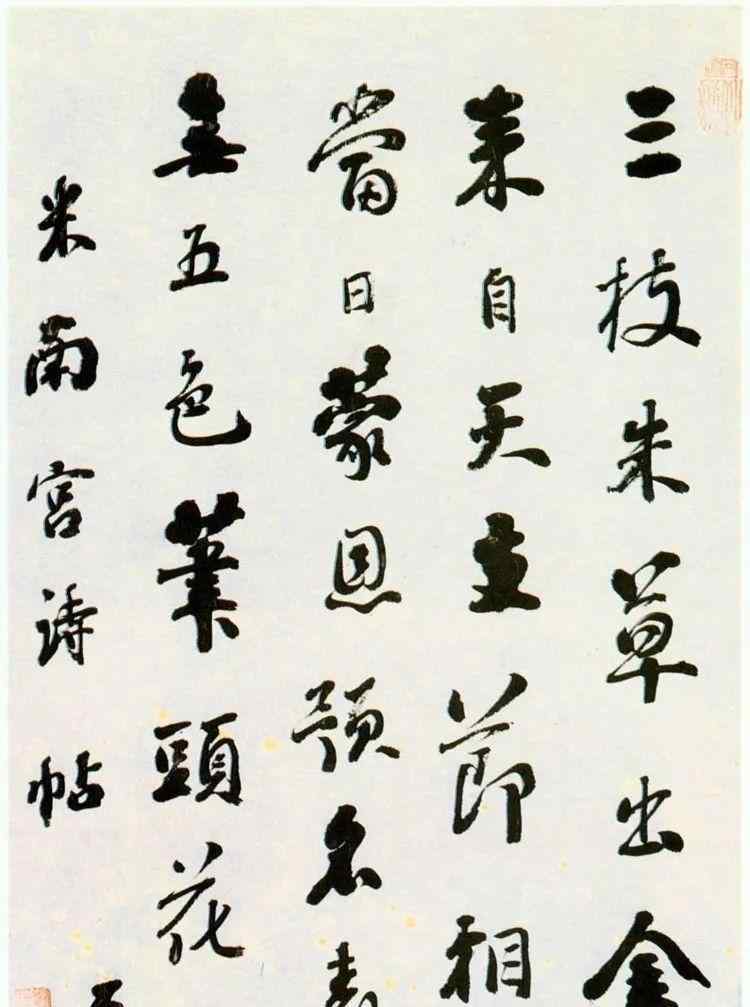 三枝朱草出金
来自天支節相
當日蒙恩預名表
無五色筆頭花
米南宮詩帖